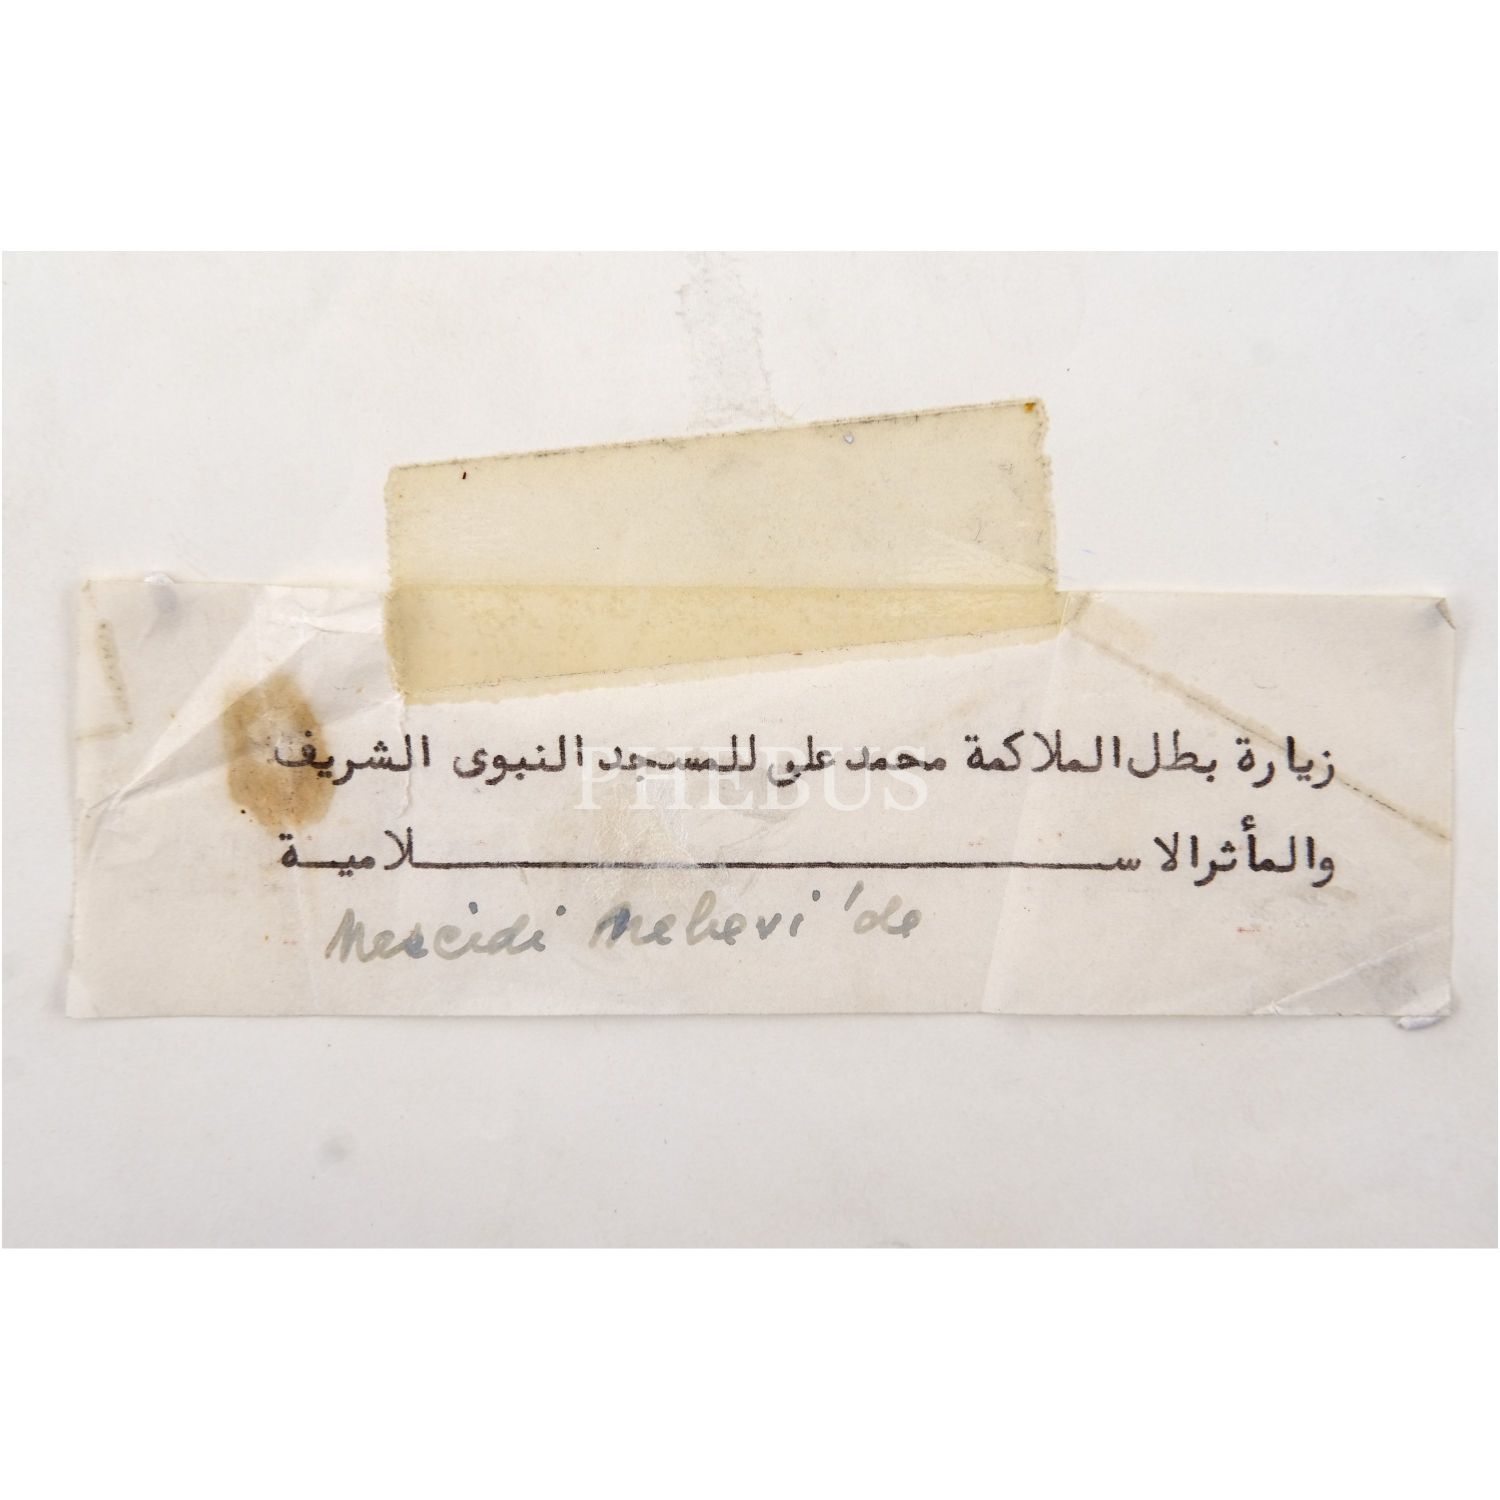 زيارة بطل الملاكمة محمد على للمسجد النبوى الشريف
PHEBUS
والمأثر الاســــــــــــــــلاميــة
Mescidi Nebevi'de